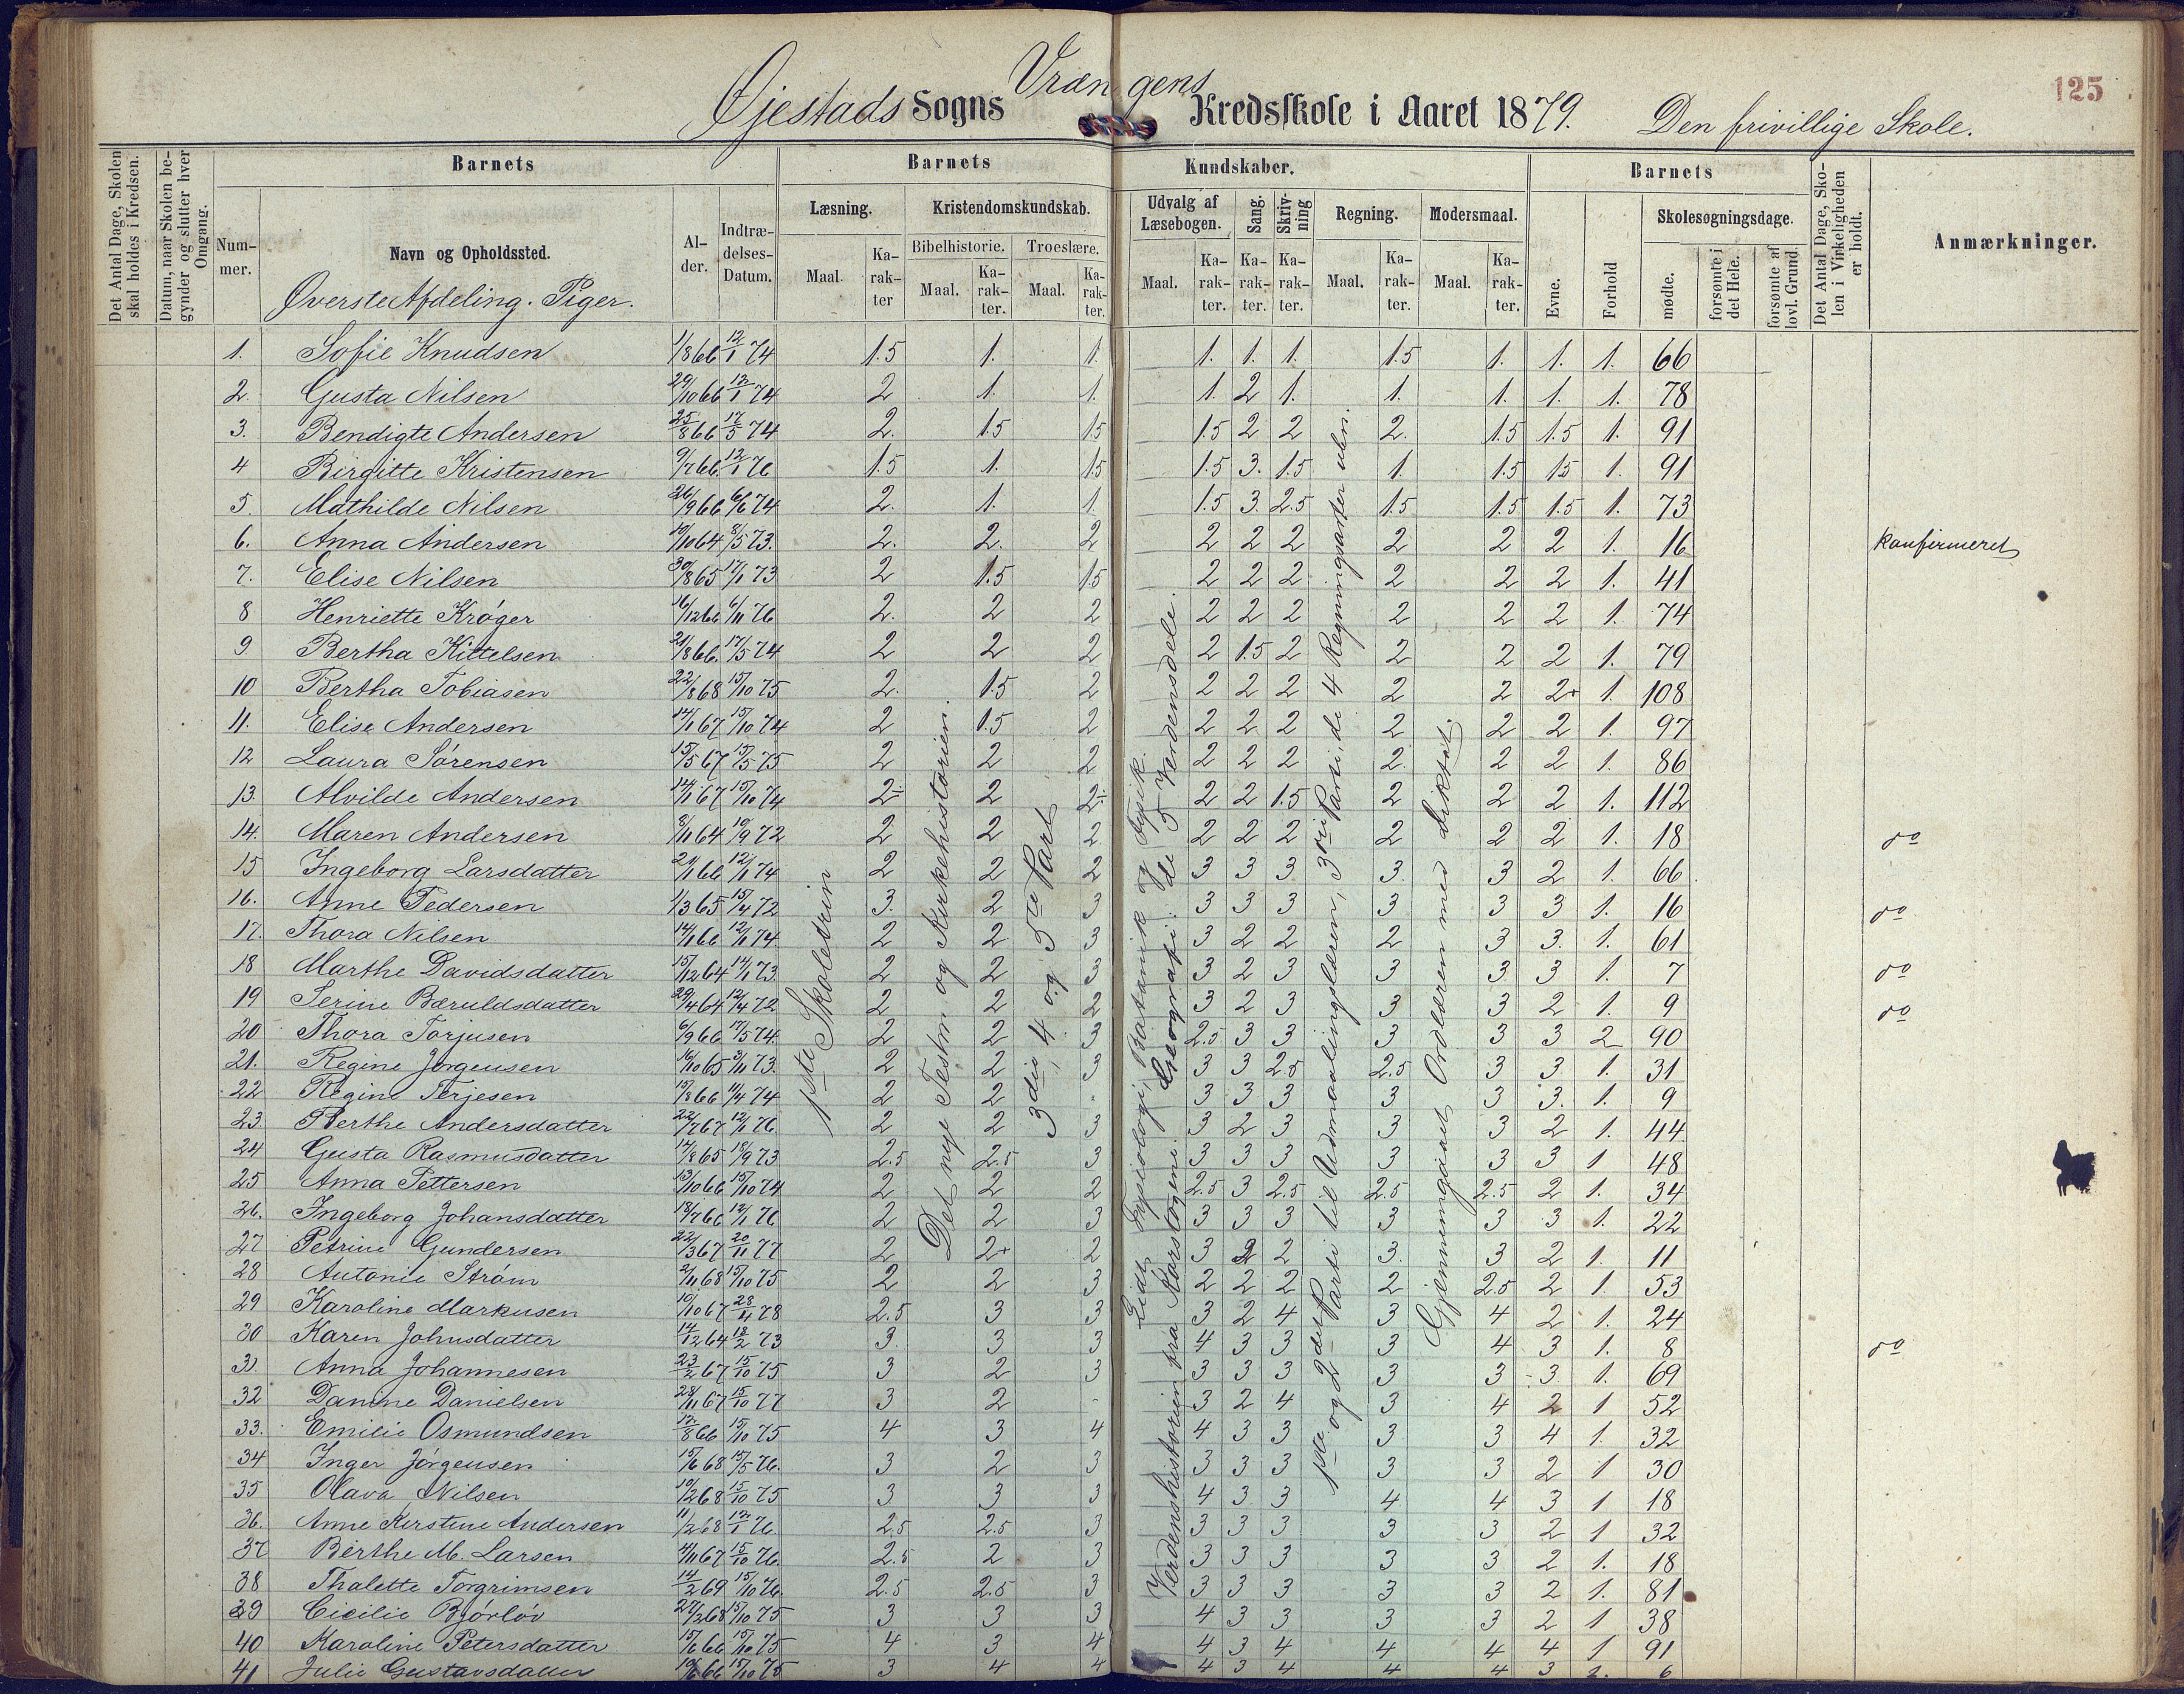 125
Øjestads Sogns Vrængens Kredsskole i Aaret 1879. Den frivillige Skole.
Det Antal Dage, Skolen skal holdes i Kredsen.
Datum, naar Skolen begynder og slutter hver Omgang.
Barnets
Nummer.
Navn og Opholdssted.
Øverste Afdeling. Piger.
Alder.
Indtrædelses-Datum.
Barnets Kundskaber.
Læsning.
Maal.
Karakter
Kristendomskundskab.
Bibelhistorie.
Maal.
Karakter.
Troeslære.
Maal.
Karakter.
Udvalg af Læsebogen.
Maal.
Karakter.
Sang.
Karakter.
Skrivning
Karakter.
Regning.
Maal.
Karakter.
Modersmaal.
Maal.
Karakter.
Barnets
Evne.
Forhold
Skolesøgningsdage.
mødte.
forsømte i det Hele.
forsømte af lovl. Grund.
Det Antal Dage, Skolen i Virkeligheden er holdt.
Anmærkninger.
1. Sofie Knudsen 1/8 66 12/1 74 1.5 1. 1. 1. 1. 1. 1.5 1. 1. 1. 66
2. Gusta Nilsen 29/10 66 12/1 74 2 1. 1. 1. 2 1. 1. 1. 1. 1. 78
3. Bendigte Andersen 25/8 66 17/5 74 2. 1.5 1.5 1.5 2 2 2. 1.5 1.5 1. 91
4 Birgitte Kristensen 9/7 66 12/1 76 1.5 1. 1.5 1.5 3. 1.5 1. 1.5 1.5 1. 91
5. Mathilde Nilsen 26/9 66 6/6 74 2. 1. 1. 1.5 3. 2.5 1.5 1.5 1.5 1. 73
6. Anna Andersen 10/10 64 8/5 73. 2. 2. 2 2 2 2 2 2 2 1. 16 konfirmeret
7. Elise Nilsen 30/8 65 17/1 73 2 1.5 1.5 2 2 2 2 2 2 1. 41
8 Henriette Krøger 16/12 66 6/11 76 2. 2 2 2 2 2 2 2 2 1. 74
9 Bertha Kittelsen 21/8 66. 17/5 74 2 2 2 2 1.5 2 2 2 2 1. 79
10 Bertha Tobiasen 22/8 68 15/10 75 2. 1.5 2 2 2 2 2 2 2+ 1. 108
11. Elise Andersen 14/1 67 15/10 74 2 1.5 2 2 2 2 2 2 2 1. 97
12 Laura Sørensen 15/5 67 15/5 75 2 2 2 2 2 2 2. 2 2 1. 86
13. Alvilde Andersen 14/1 67 15/10 74 2÷ 2 2÷ 2 2 1.5 2 2 2 1. 112
14. Maren Andersen 8/11 64 10/9 72 2 2 2 2 2 2 2 2 2 1. 18 do
15 Ingeborg Larsdatter 21/1 66 12/1 74 2 2 2 3 3 3 3. 3 2 1. 66
16. Anne Pedersen 1/3 65 15/4 72 3. 2 3 3 3 3 3 3 3 1. 16 do
17. Thora Nilsen 14/1 66 12/1 74 2 2 3 3 2 2 2 3 3. 1. 61
18 Marthe Davidsdatter 15/12 64 14/1 73. 2 2 3 3 2 3 3 3 3 1. 7 do
19 Serine Bæruldsdatter 29/4 64 12/4 72 2 2 2 3 2 3 3 3 2 1. 9 do
20 Thora Torjusen 6/9 66 17/5 74. 2 2 3 2.5 3 3 3 3 3 2 90
21. Regine Jørgensen 16/10 65 3/11 73. 2 2 3 3 3 2.5 2.5 3 3 1. 31
22 Regine Terjesen 15/8 66 11/4 74 2 2 3 3 3 3 3 3. 1. 9
23. Berthe Andersdatter 22/7 67 12/1 76 2 2 3 3 2 3 3 3 2 1. 44
24 Gusta Rasmusdatter 14/8 65 18/9 73 2.5 2.5 3 3 3 3 3 3 3 1 48
25 Anna Pettersen 13/10 66 15/10 74 2 2 2 2.5 3 2.5 2.5 2.5 2 1. 34
26. Ingeborg Johansdatter 18/7 66 12/1 76 2 2 3 3 3 3 3 3 3 1. 22
27 Petrine Gundersen 22/3 67 20/11 77 2 2+ 2 3 2 2 3. 3 2 1. 11
28 Antonie Strøm 2/11 68 15/10 75 2 2 3 2 2 2 2 2.5 2 1. 53
29 Karoline Markusen 10/10 67 28/11 78 2.5 3 3 3 2 4 3 4 2 1. 24
30 Karen Johnsdatter 14/12 64 18/2 73 3. 3 3 4 3 3 3 4 3 1. 8 do
31. Anna Johannesen 23/2 67 15/10 75 3 2 3 3 3 3 3 3 3 1. 69
32 Danine Danielsen 28/11 67 15/10 77 3 2 - 3 2 4 3 4 2 1 52
33. Emilie Osmundsen 12/8 66 15/10 75 4 3 4 4 3 3 3 3 4 1. 32
34 Inger Jørgensen 15/6 68 15/5 76. 3 2 3 3 3 3 3 3 2 1 30
35 Olava Nilsen 10/2 68 15/10 75 3 3 3 4 3 3 4 4 3 1 18
36. Anne Kirstine Andersen 11/2 68 12/1 76. 2.5 2.5 3 3 3 3 3 3 2 1 32
37 Berthe M. Larsen 4/11 67 15/10 76. 2.5 2 3 3 3 3 3 3 2 1. 18
38 Thalette Torgrimsen 14/2 69 15/10 76. 2.5 2.5 3 3 3 3 3 3 2 1. 81
39 Cicilie Bjørløv 27/2 68 15/10 75 3 3 3 4 3 3 3 3 2 1 38
40 Karoline Petersdatter 15/6 66 15/10 75 4 3 4 4 3 4 4 4 4 1 91
41 Julie Gustavsdatter 10/6 66 15/10 75 3 4 4 4 3 4 4 4 3 1. 6
1ste Skoletrin
Det nye Testm og Kirkehistorien.
3die, 4 og 5te Part
Lidt Fysiologi, Botanik og Fysik.
Verdenshistorien fra Korstogene. Geografi: de 5 Verdensdele.
1ste og 2det Parti til Udmaalingslæren, 3die Parti, de 4 Regningsarter uben.
Gjennemgaaet Ordlæren med Diktat.